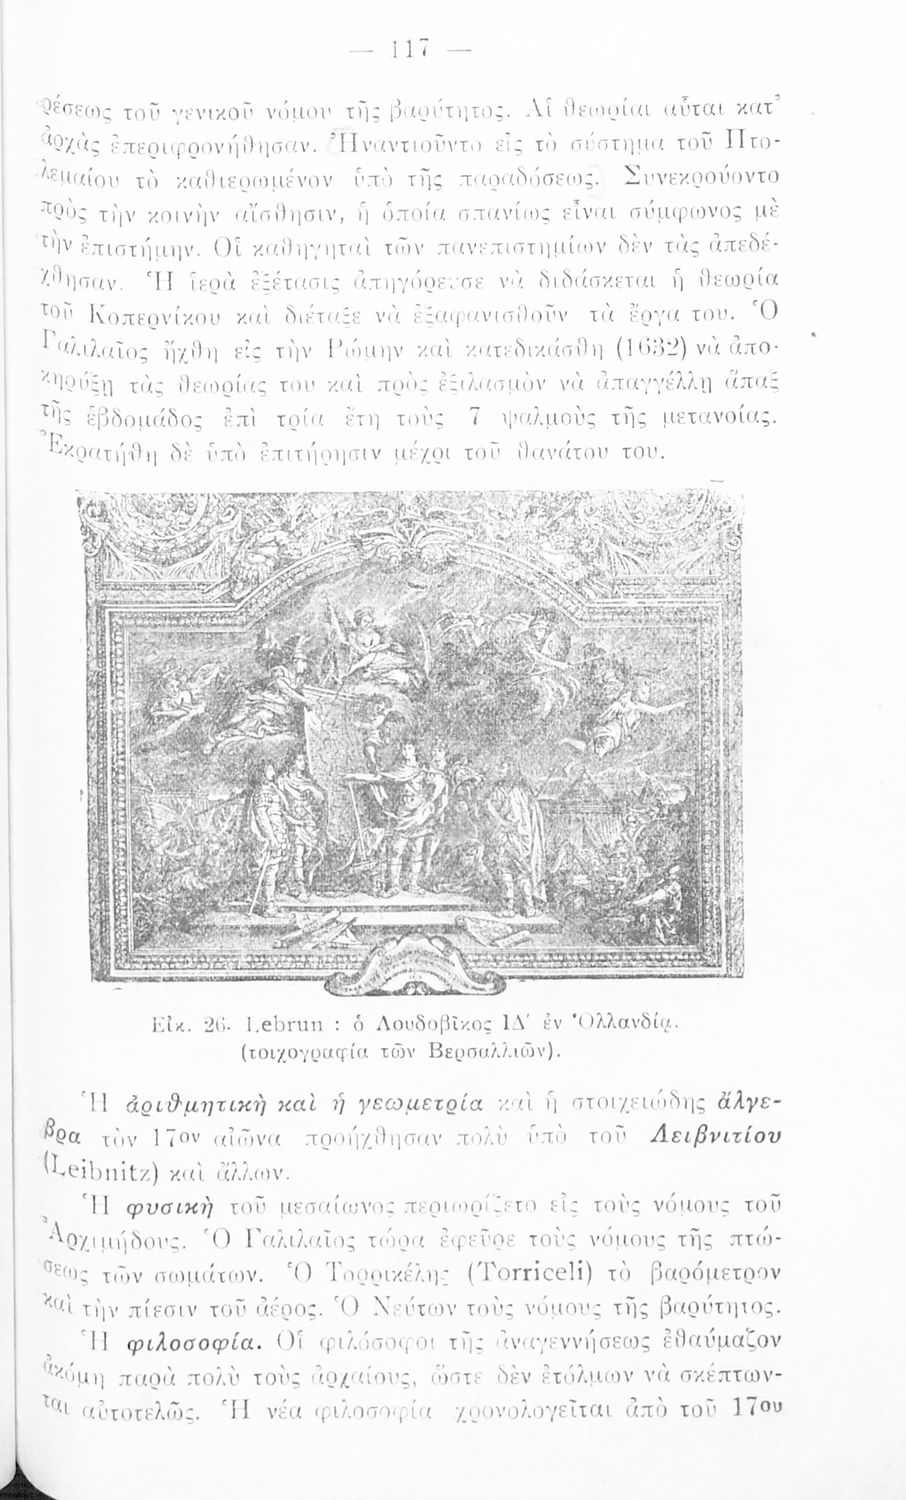 — 117 —
ρέσεως τοῦ γενικοῦ νόμου τῆς βαρύτητος. Αἱ θεωρίαι αὗται κατ’
ἀρχὰς ἐπεριφρονήθησαν. Ἠναντιοῦντο εἰς τὸ σύστημα τοῦ Πτο-
λεμαίου τὸ καθιερωμένον ὑπὸ τῆς παραδόσεως. Συνεκρούοντο
πρὸς τὴν κοινὴν αἴσθησιν, ἡ ὁποία σπανίως εἶναι σύμφωνος μὲ
τὴν ἐπιστήμην. Οἱ καθηγηταὶ τῶν πανεπιστημίων δὲν τὰς ἀπεδέ-
χθησαν. Ἡ ἱερὰ ἐξέτασις ἀπηγόρευσε νὰ διδάσκεται ἡ θεωρία
τοῦ Κοπερνίκου καὶ διέταξε νὰ ἐξαφανισθοῦν τὰ ἔργα του. Ὁ
Γαλιλαῖος ἤχθη εἰς τὴν Ρώμην καὶ κατεδικάσθη (1632) νὰ ἀπο-
κηρύξῃ τὰς θεωρίας του καὶ πρὸς ἐξιλασμὸν νὰ ἀπαγγέλλῃ ἅπαξ
τῆς ἑβδομάδος ἐπὶ τρία ἔτη τοὺς 7 ψαλμοὺς τῆς μετανοίας.
Ἐκρατήθη δὲ ὑπὸ ἐπιτήρησιν μέχρι τοῦ θανάτου του.
Εἰκ. 26. Lebrun : ὁ Λουδοβῖκος ΙΔ′ ἐν Ὁλλανδίᾳ.
(τοιχογραφία τῶν Βερσαλλιῶν).
Ἡ ἀριθμητικὴ καὶ ἡ γεωμετρία καὶ ἡ στοιχειώδης ἄλγε-
βρα τὸν 17ον αἰῶνα προήχθησαν πολὺ ὑπὸ τοῦ Λειβνιτίου
(Leibnitz) καὶ ἄλλων.
Ἡ φυσικὴ τοῦ μεσαίωνος περιωρίζετο εἰς τοὺς νόμους τοῦ
Ἀρχιμήδους. Ὁ Γαλιλαῖος τώρα ἐφεῦρε τοὺς νόμους τῆς πτώ-
σεως τῶν σωμάτων. Ὁ Τορρικέλης (Torriceli) τὸ βαρόμετρον
καὶ τὴν πίεσιν τοῦ ἀέρος. Ὁ Νεύτων τοὺς νόμους τῆς βαρύτητος.
Ἡ φιλοσοφία. Οἱ φιλόσοφοι τῆς ἀναγεννήσεως ἐθαύμαζον
ἀκόμη παρὰ πολὺ τοὺς ἀρχαίους, ὥστε δὲν ἐτόλμων νὰ σκέπτων-
ται αὐτοτελῶς. Ἡ νέα φιλοσοφία χρονολογεῖται ἀπὸ τοῦ 17ου